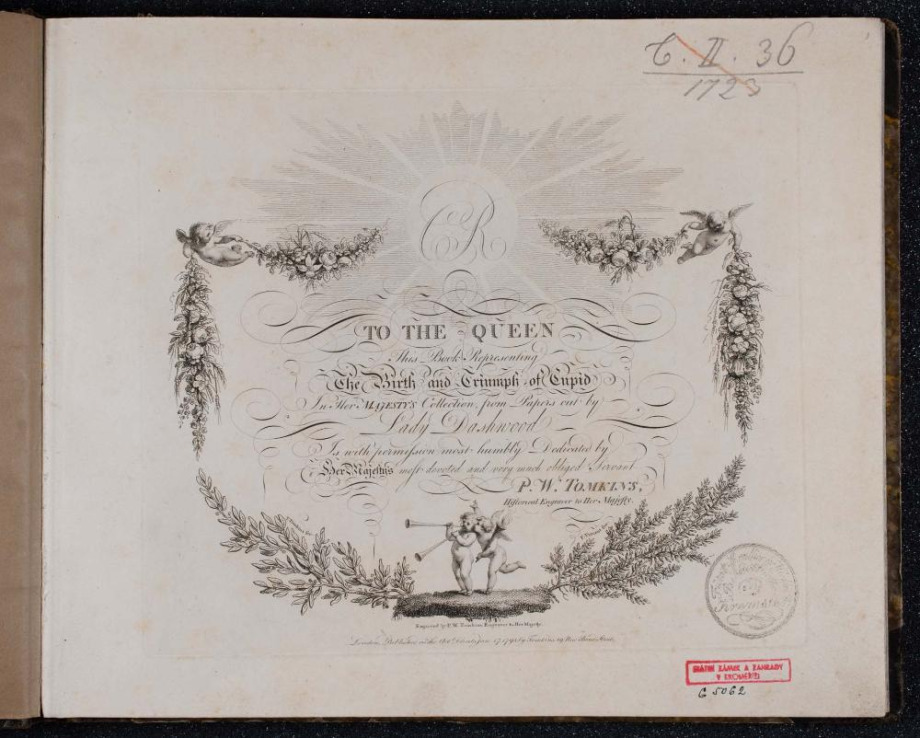 C. II. 36
1723
CR
TO THE QUEEN
This Book Representing
The Birth and Triumph of Cupid
In Her MAJESTYS Collection from Papers cut by
Lady Dashwood
Is with permission most humbly Dedicated by
Her Majestys most devoted and very much obliged Servant
P. W. TOMKINS,
Historical Engraver to Her Majesty.
Engraved by P. W. Tomkins Engraver to Her Majesty.
London, Publish'd as the Act Directs
by Tomkins
Bond Street
STÁTNÍ ZÁMEK A ZAHRADY
V KROMĚŘÍŽI
C 5062